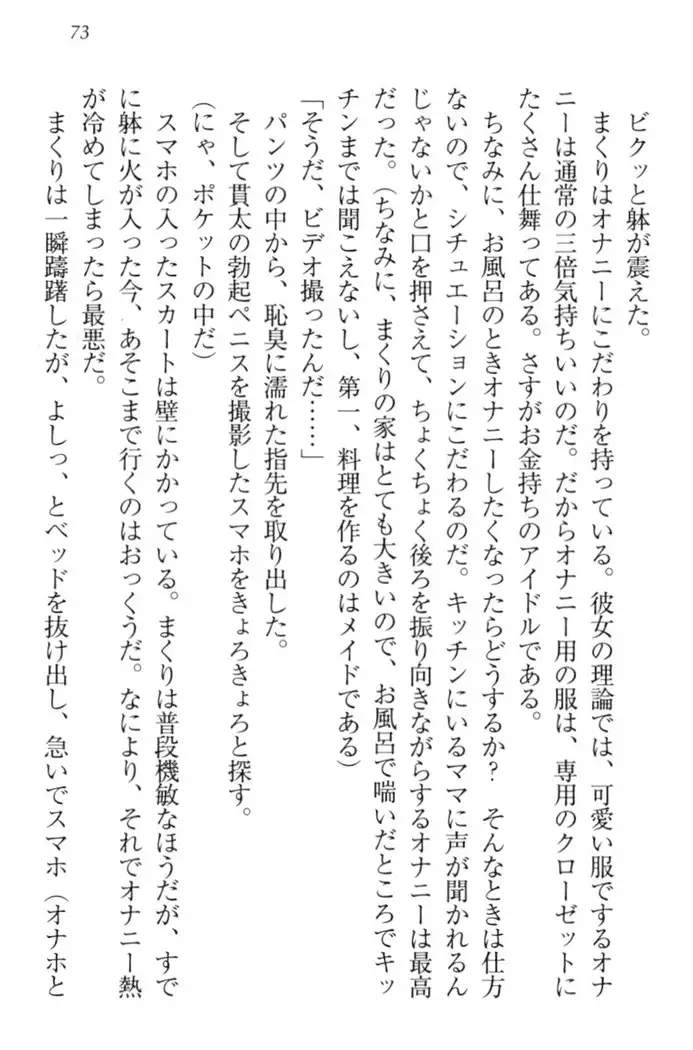 73
ビクッと躰が震えた。
まくりはオナニーにこだわりを持っている。彼女の理論では、可愛い服でするオナ
ニーは通常の三倍気持ちいいのだ。だからオナニー用の服は、専用のクローゼットに
たくさん仕舞ってある。さすがお金持ちのアイドルである。
ちなみに、お風呂のときオナニーしたくなったらどうするか？　そんなときは仕方
ないので、シチュエーションにこだわるのだ。キッチンにいるママに声が聞かれるん
じゃないかと口を押さえて、ちょくちょく後ろを振り向きながらするオナニーは最高
だった。（ちなみに、まくりの家はとても大きいので、お風呂で喘いだところでキッ
チンまでは聞こえないし、第一、料理を作るのはメイドである）
「そうだ、ビデオ撮ったんだ……」
パンツの中から、恥臭に濡れた指先を取り出した。
そして貫太の勃起ペニスを撮影したスマホをきょろきょろと探す。
（にゃ、ポケットの中だ）
スマホの入ったスカートは壁にかかっている。まくりは普段機敏なほうだが、すで
に躰に火が入った今、あそこまで行くのはおっくうだ。なにより、それでオナニー熱
が冷めてしまったら最悪だ。
まくりは一瞬躊躇したが、よしっ、とベッドを抜け出し、急いでスマホ（オナホと